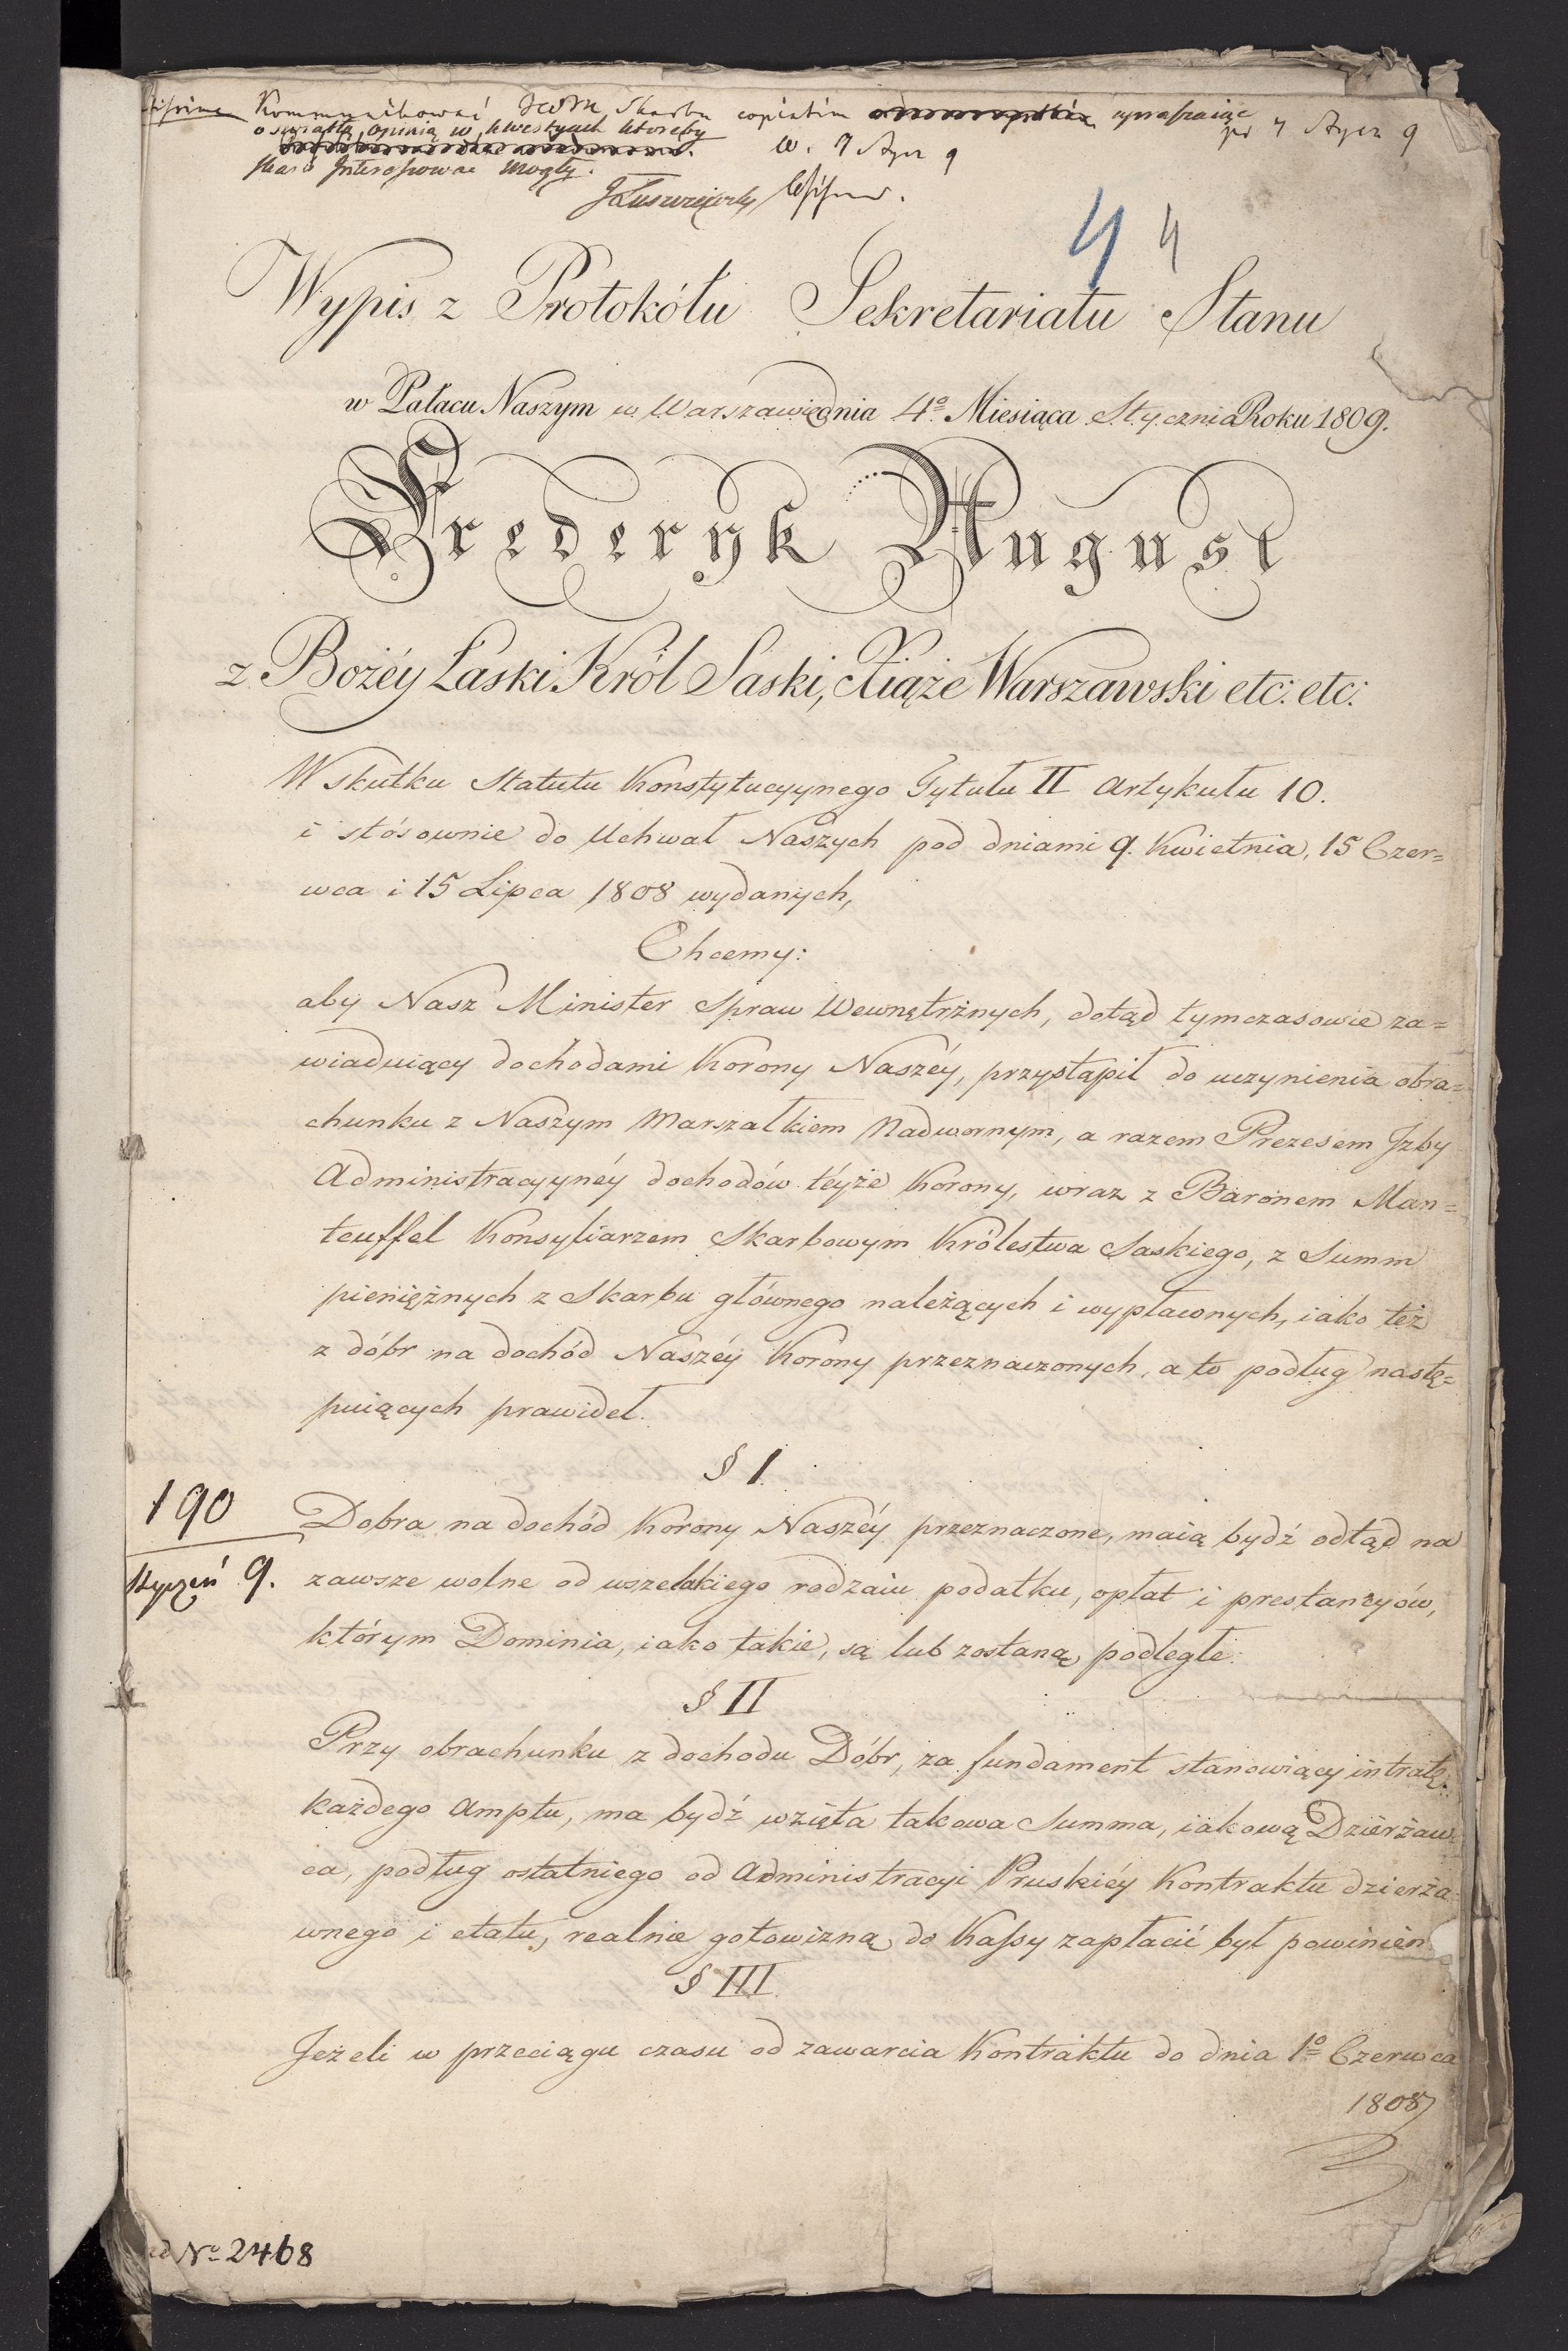 Kommunikować JWM Skarbu copiatim upraszaiąc
o światłą opinią w kwestyach któreby
Skarb Interessować mogły.
w. 7 Stycz 9
pr 7 Stycz 9
JŁuszczewski
4 4
Wypis z Protokółu Sekretariatu Stanu
w Pałacu Naszym w Warszawie dnia 4º Miesiąca Stycznia Roku 1809.
Frederyk August
z Bożéy Łaski Król Saski, Xiąże Warszawski etc: etc:
W skutku Statutu Konstytucyynego Tytułu II Artykułu 10.
i stósownie do Uchwał Naszych pod dniami 9. Kwietnia, 15 Czer=
wca i 15 Lipca 1808 wydanych,
Chcemy:
aby Nasz Minister Spraw Wewnętrżnych, dotąd tymczasowie za=
wiaduiący dochodami Korony Naszéy, przystąpił do uczynienia obra=
chunku z Naszym Marszałkiem Nadwornym, a razem Prezesem Jzby
Administracyynéy dochodów téyże Korony, wraz z Baronem Man=
teuffel Konsyliarzem Skarbowym Królestwa Saskiego, z Summ
pieniężnych z Skarbu głównego należących i wypłaconych, iako też
z dóbr na dochód Naszéy Korony przeznaczonych, a to podług nastę=
puiących prawideł.
§ I.
190
Styczeń 9.
Dobra na dochód Korony Naszéy przeznaczone, maią bydź odtąd na
zawsze wolne od wszelakiego rodzaiu podatku, opłat i prestancyów,
którym Dominia, iako takie, są lub zostaną podległe.
§ II
Przy obrachunku z dochodu Dóbr, za fundament stanowiący intratę
każdego Amptu, ma bydź wzięta takowa Summa, iakową Dzierżaw=
ca, podług ostatniego od Administracyi Pruskiéy Kontraktu dzierża=
wnego i etatu, realnie gotowizną do Kassy zapłacić był powinien
§ III.
Jeżeli w przeciągu czasu od zawarcia Kontraktu do dnia 1º Czerwca
1808
ad Nº 2468